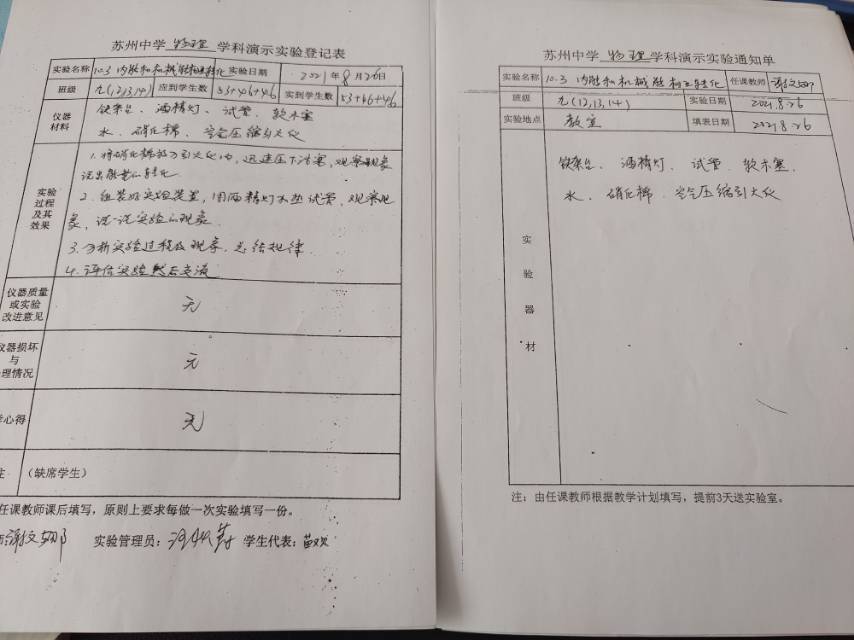 苏州中学 物理 学科演示实验登记表
实验名称 10.3 内能和机械能相互转化 实验日期 2021年8月26日
班级 九(12,13,14) 应到学生数 53+46+46 实到学生数 53+46+46
仪器材料
铁架台、酒精灯、试管、软木塞
水、硝化棉、空气压缩引火仪
实验过程及其效果
1. 将硝化棉放入引火仪内，迅速压下活塞，观察现象
说出能量的转化
2. 组装好实验装置，用酒精灯加热试管，观察现
象，说一说实验的现象.
3. 分析实验过程及现象，总结规律.
4. 评估实验然后交流
仪器质量或实验改进意见
无
仪器损坏与
理情况
无
心得
无
注
（缺席学生）
任课教师课后填写，原则上要求每做一次实验填写一份。
实验管理员： 学生代表：
苏州中学 物理 学科演示实验通知单
实验名称 10.3 内能和机械能相互转化 任课教师
班级 九(12,13,14) 实验日期 2021.8.26
实验地点 教室 填表日期 2021.8.26
实验器材
铁架台、酒精灯、试管、软木塞、
水、硝化棉、空气压缩引火仪
注：由任课教师根据教学计划填写，提前3天送实验室。